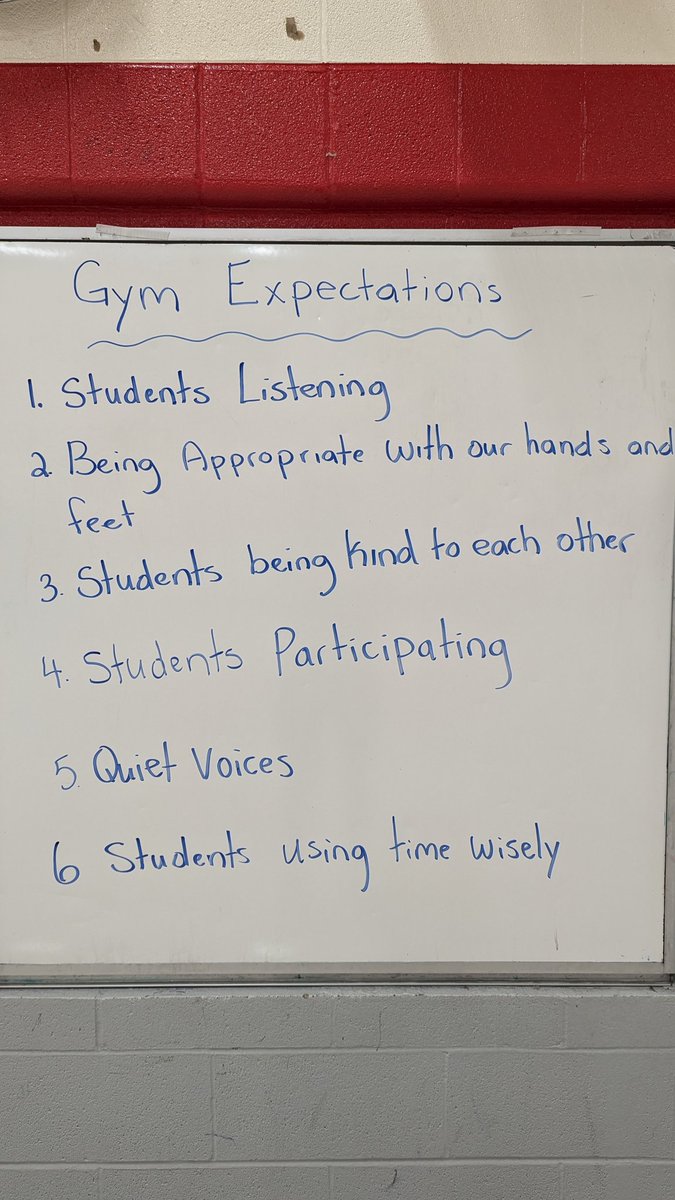 Gym Expectations
1. Students Listening
2. Being Appropriate with our hands and
feet
3. Students being kind to each other
4. Students Participating
5. Quiet Voices
6 Students using time wisely